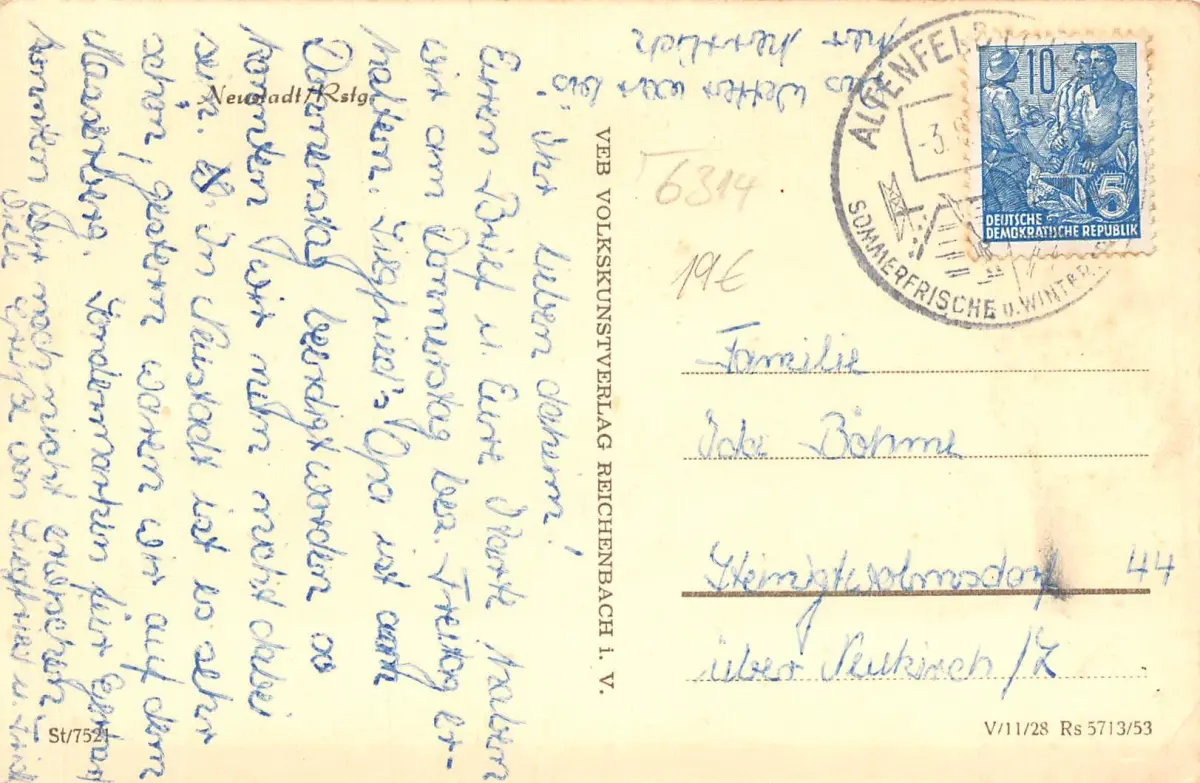 Neustadt/Rstg.
Ihr lieben daheim!
Euren Brief u. Eure Karte haben
wir am Donnerstag bez. Freitag er-
halten. Siegfried's Opa ist am
Donnerstag beerdigt worden da
konnten wir nun nicht dabei
sein. In Neustadt ist es sehr
schön, gestern waren wir auf dem
Masserberg. Sondermarken für Bernd
konnten wir noch nicht erwischen
Viele Grüße von Siegfried u.
Das Wetter war bis
hier herrlich
VEB VOLKSKUNSTVERLAG REICHENBACH i. V.
6314
19€
ALTENFELD
-3.
SOMMERFRISCHE u. WINTER
10
5
DEUTSCHE
DEMOKRATISCHE REPUBLIK
Familie
Böhme
Steinigtwolmsdorf 44
über Neukirch /L
St/7521
V/11/28 Rs 5713/53